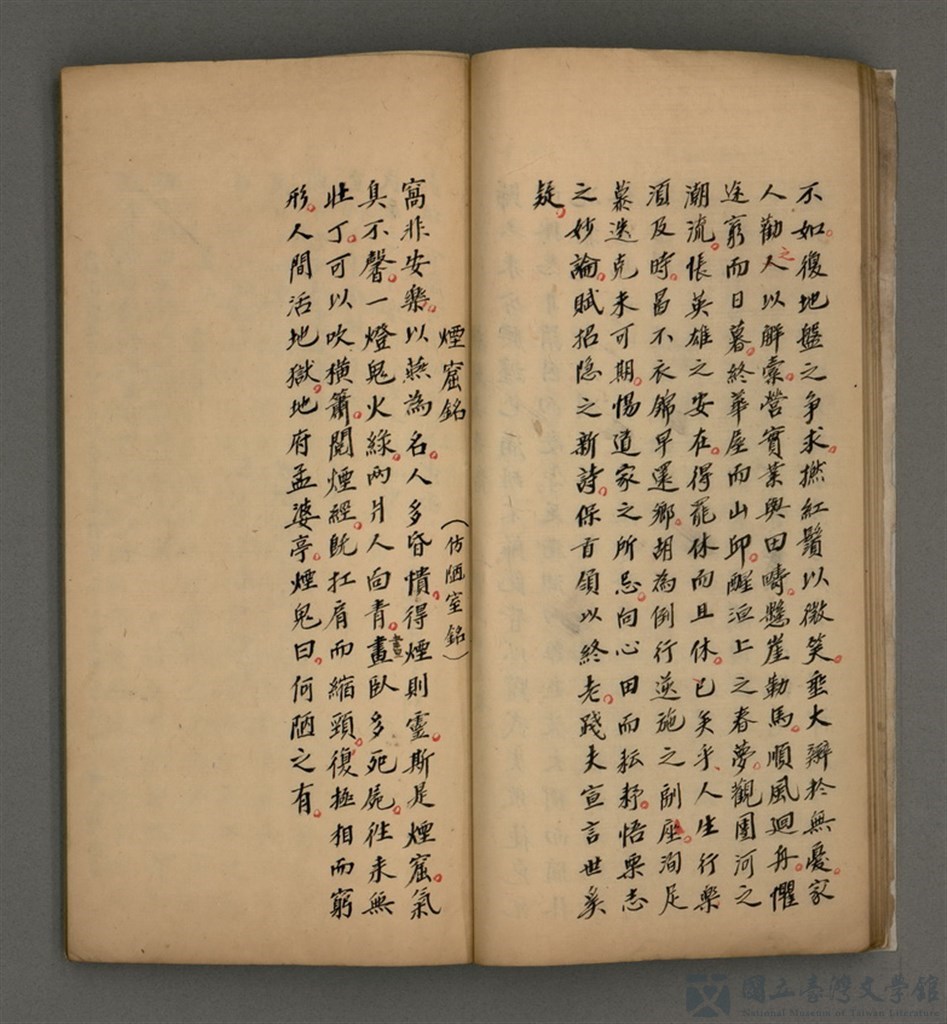 不如。復地盤之爭求。撚紅鬚以微笑。垂大辮於無憂。家
人勸之人以解索。營實業與田疇。懸崖勒馬。順風迴舟。懼
途窮而日暮。終華屋而山邱。醒涯上之春夢。觀圖河之
潮流。悵英雄之安在。得罷休而且休。已矣乎。人生行樂
須及時。曷不衣錦早還鄉。胡為倒行逆施之副座。洵足
慕逃克未可期。惕道家之所忌。向心田而耘耔。悟栗志
之妙論。賦招隐之新詩。保首領以終老。踐夫宣言世奚
疑。
煙窟銘 (仿陋室銘)
窩非安樂。以燕為名。人多昏憒。得煙則靈。斯是煙窟。氣
臭不馨。一燈鬼火綠。兩片人面青。晝臥多死屍。往来無
壯丁。可以吹橫簫。閱煙經。既扛肩而縮頸。復極相而窮
形。人間活地獄。地府孟婆亭。煙鬼曰。何陋之有。
國立臺灣文學館
National Museum of Taiwan Literature